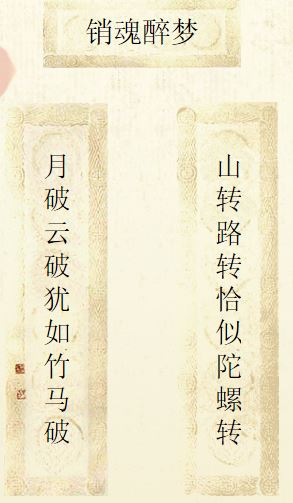 销魂醉梦
山转路转恰似陀螺转
月破云破犹如竹马破